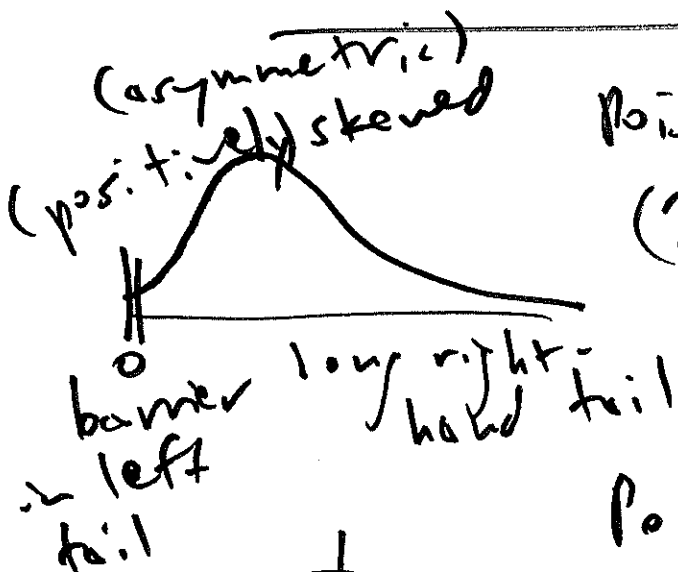 (asymmetric)
(positively) skewed
Poi
(
0
barrier
in left
tail
long right-
hand tail
Po